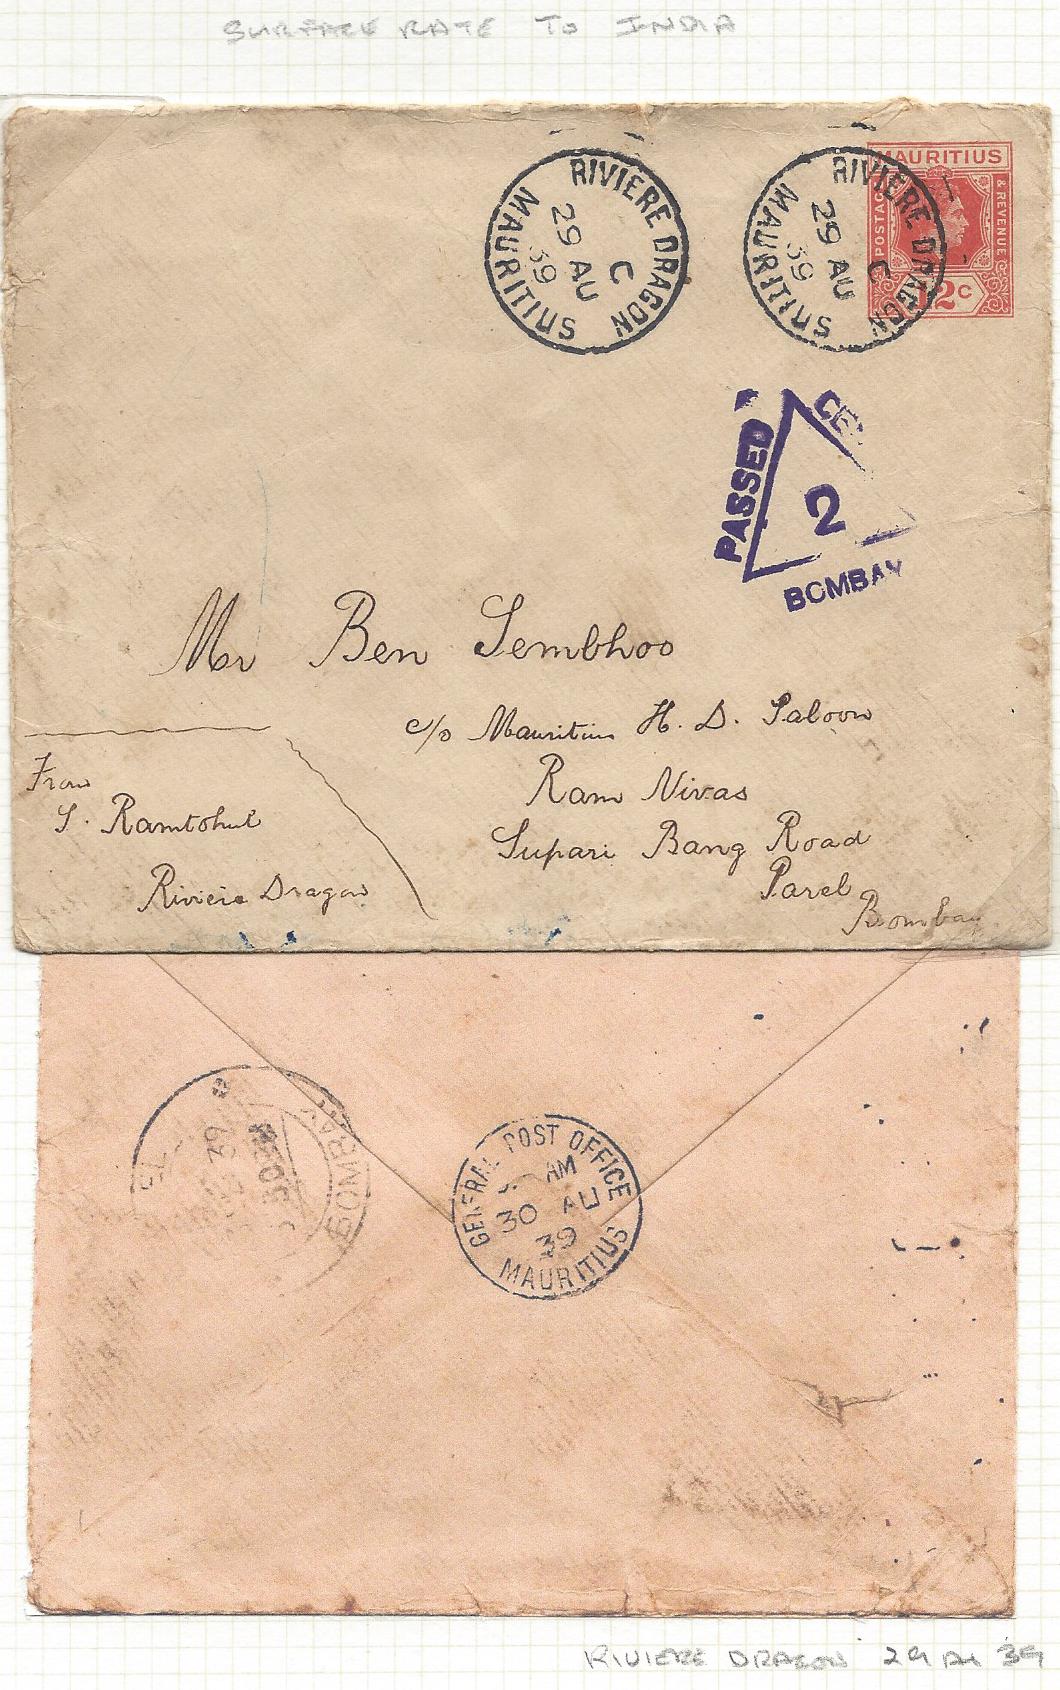 SURFACE RATE TO INDIA
RIVIERE DRAGON
C
29 AU
39
MAURITIUS
RIVIERE DRAGON
C
29 AU
39
MAURITIUS
MAURITIUS
POSTAGE
& REVENUE
12c
PASSED
CE
2
BOMBAY
Mr Ben Sembhoo
c/o Mauritius H. D. Saloon
Ram Nivas
Supari Bang Road
Parel
Bombay
From
S. Ramtohul
Riviere Dragon
EL
39
BOMBAY
GENERAL POST OFFICE
AM
30 AU
39
MAURITIUS
RIVIERE DRAGON 29 AU 39